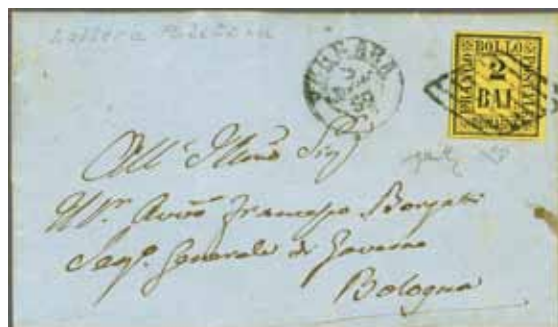 Lettera
FERRARA
59
FRANCO BOLLO POSTALE
2
BAI
All' Illmo Sig
Avvo Francesco Borgatti
Sego. Generale di Governo
Bologna